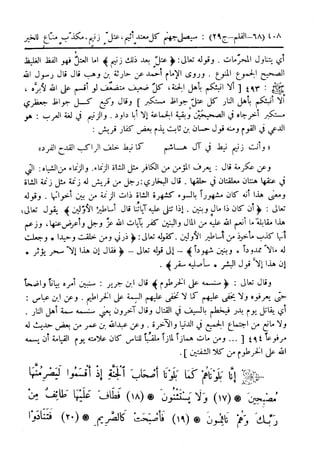 ٤٠٨ (٦٨ - القلم - ج٢٩) : سيصلى جهنم كل معتد أثيم، عتل زنيم، مكذب مناع للخير
أي يتناول المحرمات. وقوله تعالى: ﴿ عتل بعد ذلك زنيم ﴾ أما العتل فهو الفظ الغليظ
الصحيح الجموع المنوع. وروى الإمام أحمد عن حارثة بن وهب قال قال رسول الله
ﷺ : ٤٩٣ [ ألا أنبئكم بأهل الجنة، كل ضعيف متضعف لو أقسم على الله لأبره،
ألا أنبئكم بأهل النار كل عتل جواظ مستكبر ] وقال وكيع كل جواظ جعظري
مستكبر أخرجاه في الصحيحين وبقية الجماعة إلا أبا داود. والزنيم في لغة العرب: هو
الدعي في القوم ومنه قول حسان بن ثابت يذم بعض كفار قريش:
«وأنت زنيم نيط في آل هاشم كما نيط خلف الراكب القدح الفرد»
وعن عكرمة قال: يعرف المؤمن من الكافر مثل الشاة الزنماء. والزنماء من الشياه: التي
في عنقها هنتان معلقتان في حلقها. قال البخاري: رجل من قريش له زنمة مثل زنمة الشاة
ومعنى هذا أنه كان مشهوراً بالسوء كشهرة الشاة ذات الزنمة من بين أخواتها. وقوله
تعالى: ﴿ أن كان ذا مال وبنين. إذا تتلى عليه آياتنا قال أساطير الأولين ﴾ يقول تعالى:
هذا مقابلة ما أنعم الله عليه من المال والبنين كفر بآيات الله عز وجل وأعرض عنها، وزعم
أنها كذب مأخوذ من أساطير الأولين. كقوله تعالى: ﴿ ذرني ومن خلقت وحيداً * وجعلت
له مالاً ممدوداً * وبنين شهوداً ﴾ - إلى قوله تعالى - ﴿ فقال إن هذا إلا سحر يؤثر *
إن هذا إلا قول البشر * سأصليه سقر ﴾.
وقال تعالى: ﴿ سنسمه على الخرطوم ﴾ قال ابن جرير: سنبين أمره بياناً واضحاً
حتى يعرفوه ولا يخفى عليهم كما لا تخفى عليهم السمة على الخراطيم. وعن ابن عباس:
أي يقاتل يوم بدر فيخطم بالسيف في القتال وقال آخرون يعني سنسمه سمة أهل النار.
ولا مانع من اجتماع الجميع في الدنيا والآخرة. وعن عبدالله بن عمر من بعض حديث له
مرفوعاً ٤٩٤ [ ... ومن مات همازاً لمازاً ملقباً للناس كان علامته يوم القيامة أن يسمه
الله على الخرطوم من كلا الشفتين ].
إِنَّا بَلَوْنَاهُمْ كَمَا بَلَوْنَا أَصْحَابَ الْجَنَّةِ إِذْ أَقْسَمُوا لَيَصْرِمُنَّهَا
مُصْبِحِينَ * (١٧) وَلَا يَسْتَثْنُونَ * (١٨) فَطَافَ عَلَيْهَا طَائِفٌ مِنْ
رَبِّكَ وَهُمْ نَائِمُونَ * (١٩) فَأَصْبَحَتْ كَالصَّرِيمِ * (٢٠) فَتَنَادَوْا